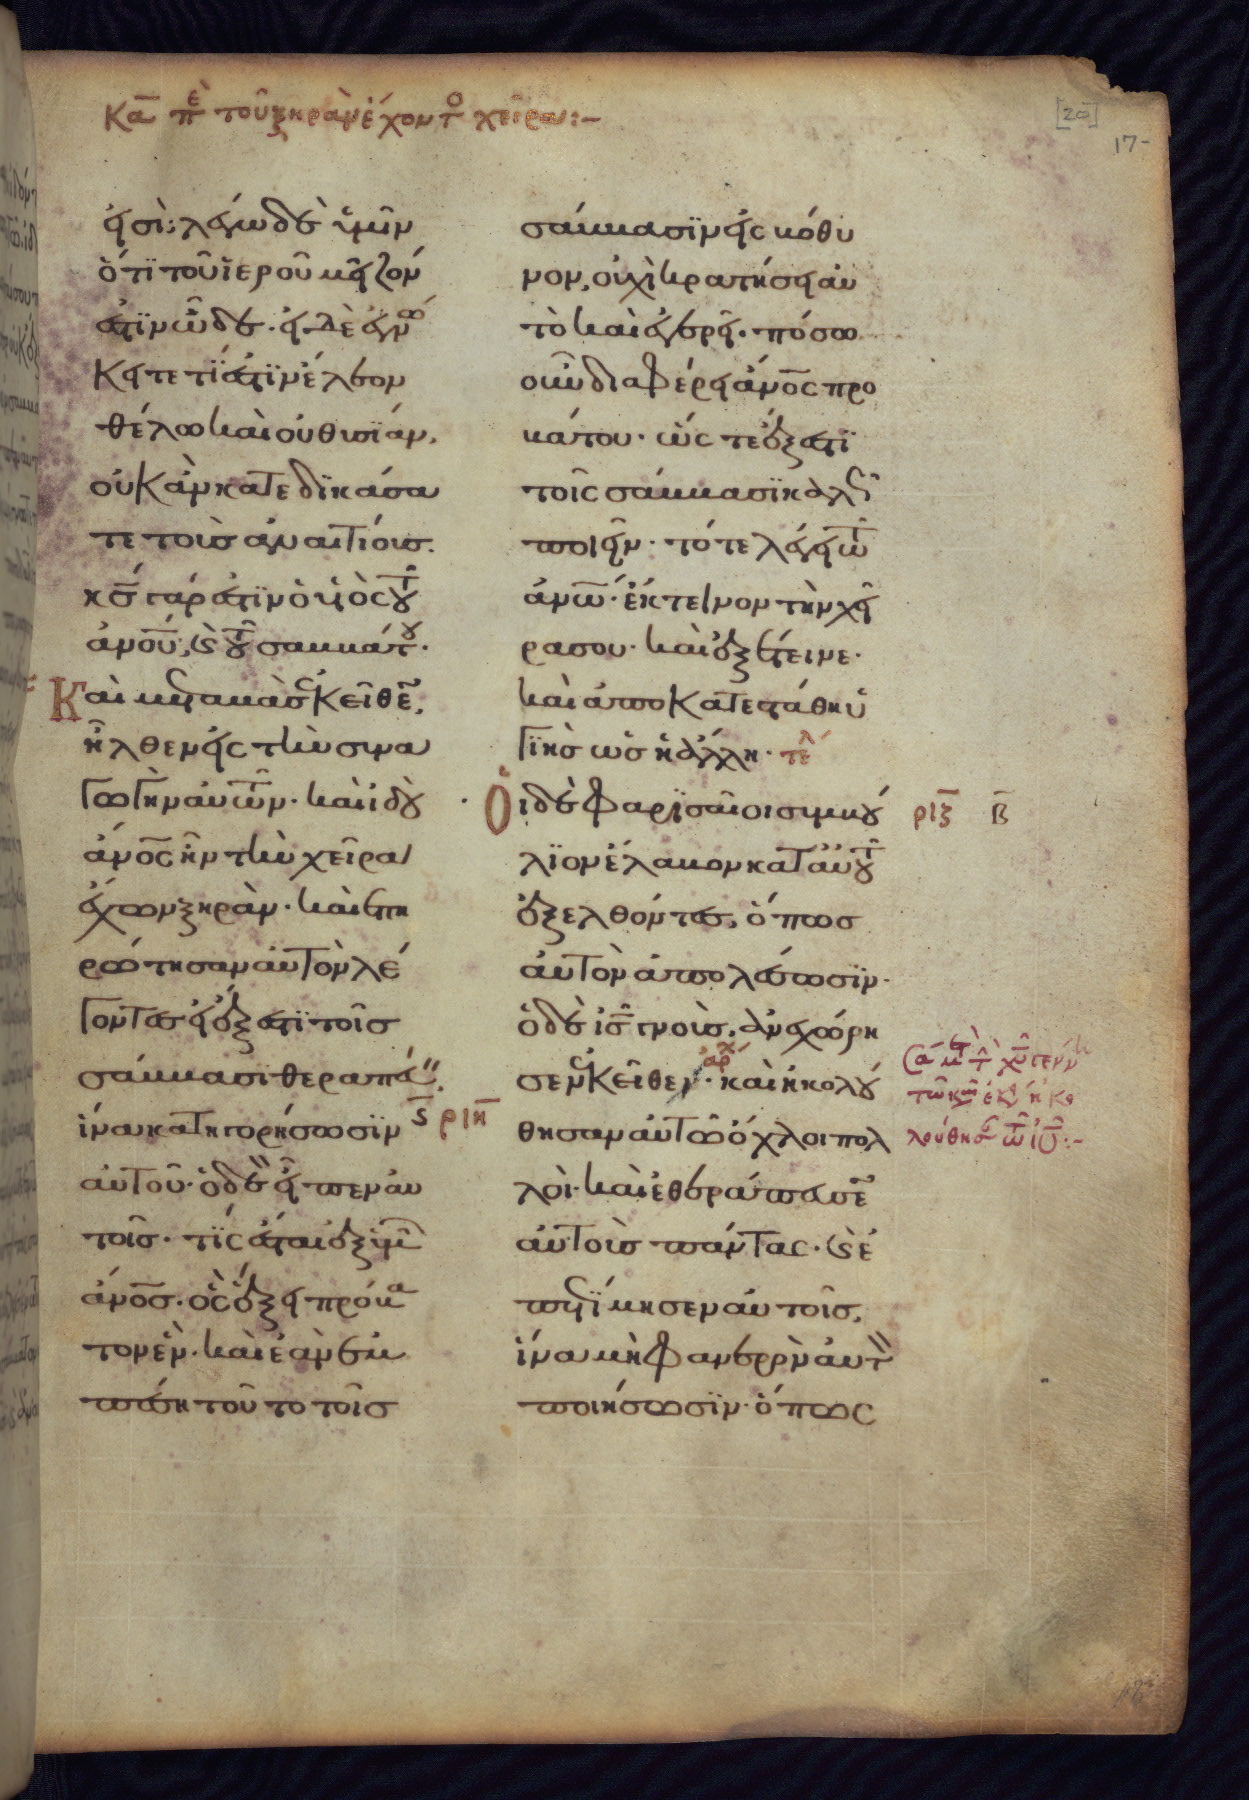 Κα πε τοῦ ξηρὰν ἔχοντο χεῖρα:–
[20]
17-
εἰσὶ: λέγω δὲ ὑμῖν
ὅτι τοῦ ἱεροῦ μεῖζόν
ἐστιν ὧδε· εἰ δὲ ἐγνώ
κειτε τί ἐστιν ἔλεον
θέλω καὶ οὐ θυσίαν,
οὐκ ἂν κατεδικάσα
τε τοὺς ἀναιτίους.
κς γάρ ἐστιν ὁ υἱὸς τοῦ
ἀνου, καὶ τοῦ σαββάτου·
Καὶ μεταβὰς ἐκεῖθεν,
ἦλθεν εἰς τὴν συνα
γωγὴν αὐτῶν· καὶ ἰδοὺ
ἄνος ἦν τὴν χεῖρα
ἔχων ξηράν· καὶ ἐπη
ρώτησαν αὐτὸν λέ
γοντες εἰ ἔξεστι τοῖς
σάββασι θεραπεύειν,
ἵνα κατηγορήσωσιν
ϛ ριη
αὐτοῦ· ὁ δὲ εἶπεν αὐ
τοῖς· τίς ἔσται ἐξ ὑμῶν
ἄνος· ὃς ἕξει πρόβα
τον ἕν· καὶ ἐὰν ἐμ
πέσῃ τοῦτο τοῖς
σάββασιν εἰς βόθυ
νον, οὐχὶ κρατήσει αὐ
τὸ καὶ ἐγερεῖ· πόσω
οὖν διαφέρει ἄνος προ
βάτου· ὥστε ἔξεστι
τοῖς σάββασι καλῶς
ποιεῖν· τότε λέγει τῶ
ἀνω· ἔκτεινον τὴν χεῖ
ρα σου· καὶ ἐξέτεινε·
καὶ ἀποκατεστάθη ὑ
γιὴς ὡς ἡ ἄλλη· τελ
Οἱ δὲ φαρισαῖοι συμβού
ριξ Β
λιον ἔλαβον κατ αὐτοῦ
ἐξελθόντες, ὅπως
αὐτὸν ἀπολέσωσιν·
ὁ δὲ ις γνοὺς, ἀνεχώρη
σεν ἐκεῖθεν· αρχ καὶ ἠκολού
θησαν αὐτῶ ὄχλοι πολ
λοὶ· καὶ ἐθεράπευσεν
αὐτοὺς πάντας· καὶ ἐ
πετίμησεν αὐτοῖς,
ἵνα μὴ φανερὸν αὐτὸν
ποιήσωσιν· ὅπως